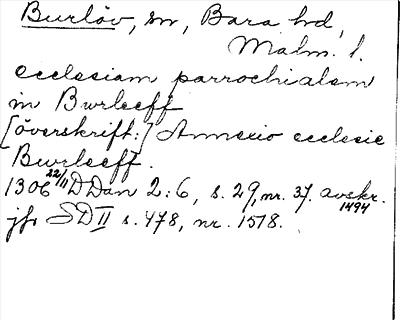 Burlöv, sn, Bara hd,
Malm. l.
ecclesiam parrochialem
in Bwrleeff
[överskrift:] Annexio ecclesie
Bwrleeff.
1306 22/11 DDan 2:6, s. 29, nr. 37. avskr. 1494
jfr SD II s. 478, nr. 1518.